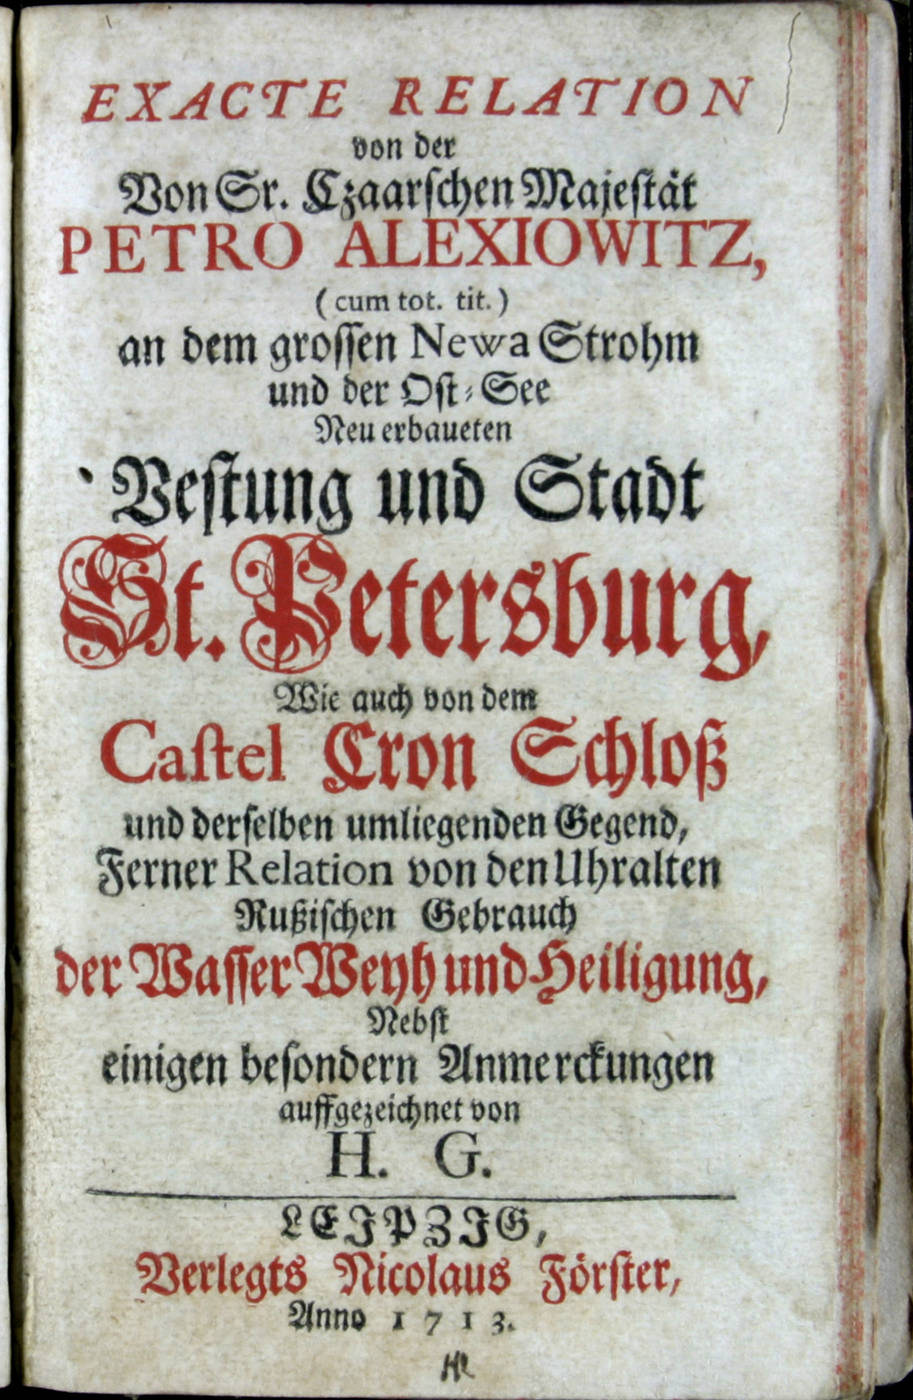 EXACTE RELATION
von der
Von Sr. Czaarſchen Majeſtät
PETRO ALEXIOWITZ,
(cum tot. tit.)
an dem groſſen Newa Strohm
und der Oſt-See
Neu erbaueten
Veſtung und Stadt
St. Petersburg,
Wie auch von dem
Caſtel Cron Schloß
und derſelben umliegenden Gegend,
Ferner Relation von den Uhralten
Rußiſchen Gebrauch
der Waſſer Weyh und Heiligung,
Nebſt
einigen beſondern Anmerckungen
auffgezeichnet von
H. G.
LEJPZJG,
Verlegts Nicolaus Förſter,
Anno 1713.